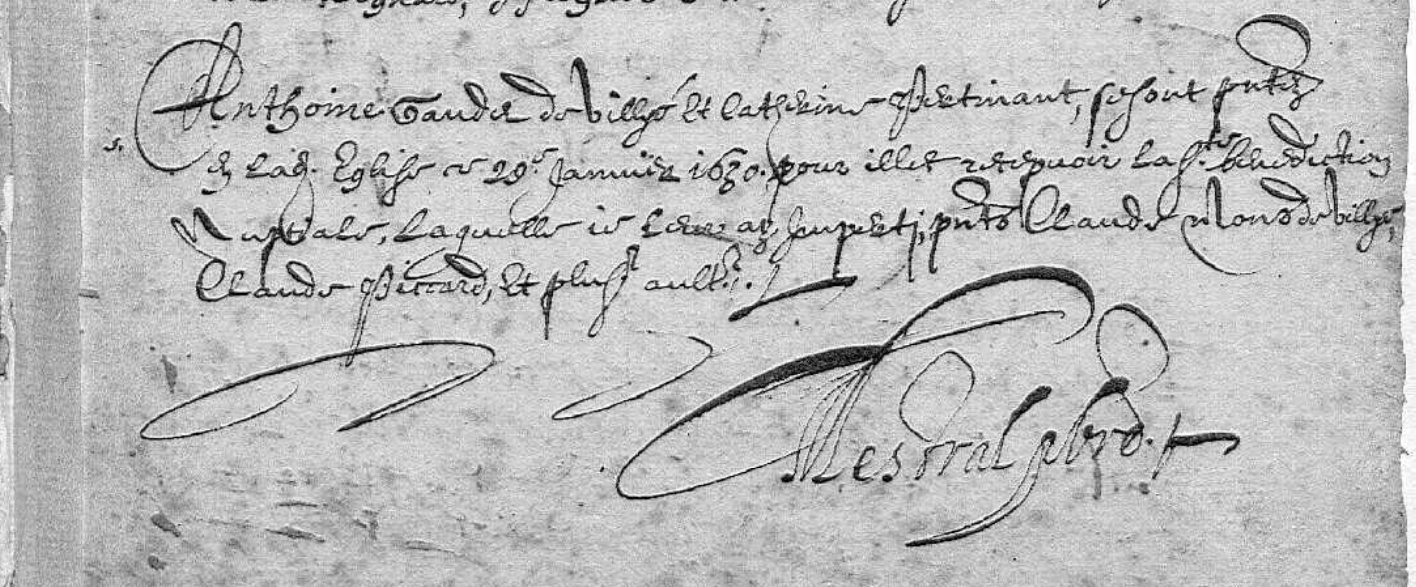 Anthoine Gauder de Villye et Catherine Pertinant, se sont pntéz
en lad. Eglise ce 29.e Janvier 1630. pour illec recepvoir la s.te benediction
Nuptiale, laquelle ie leur ay Imperti, pnts Claude Mons de Villye,
Claude Piccard, et plus.rs ault.rs.
Mestral pbre.